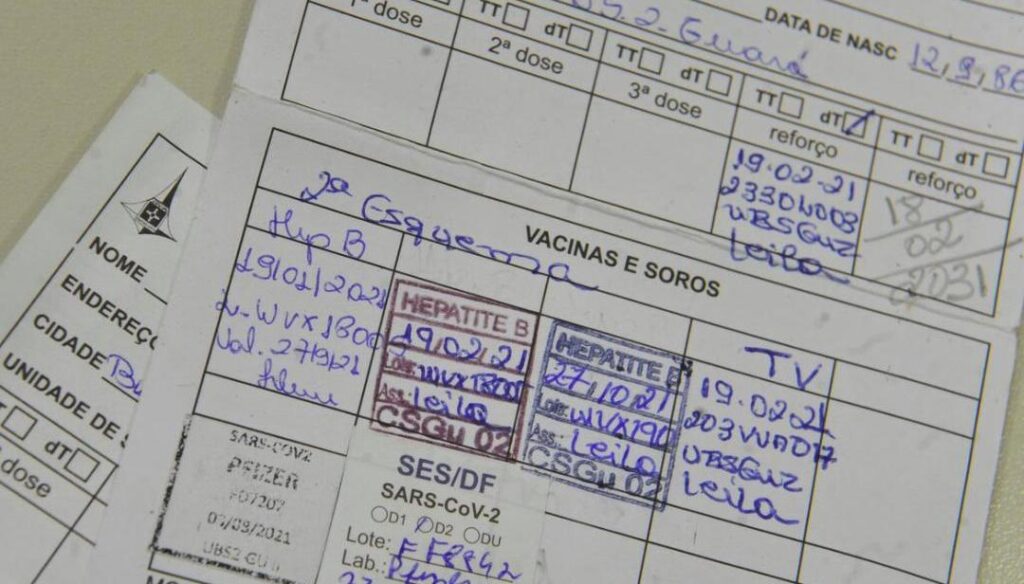 DATA DE NASC 12,9,86
Guará
1ª dose
TT dT
2ª dose
TT dT
3ª dose
TT dT
reforço
19.02.21
UBSGUZ
Leila
TT dT
reforço
18
02
2031
VACINAS E SOROS
2ª Esquema
Hep B
19/01/2021
Val. 27/9/21
HEPATITE B
19,02,21
Lote:
Ass.: Leila
CSGu 02
HEPATITE B
27,10,21
Lote: WVX190
Ass.: Leila
CSGu 02
TV
19.0221
203VVA017
UBSGUZ
Leila
SARS-COV2
PFIZER
UBS2 GU
SES/DF
SARS-CoV-2
D1 D2 DU
Lote: FF8842
Lab.:
NOME
ENDEREÇO
CIDADE
UNIDADE DE
dT
dose